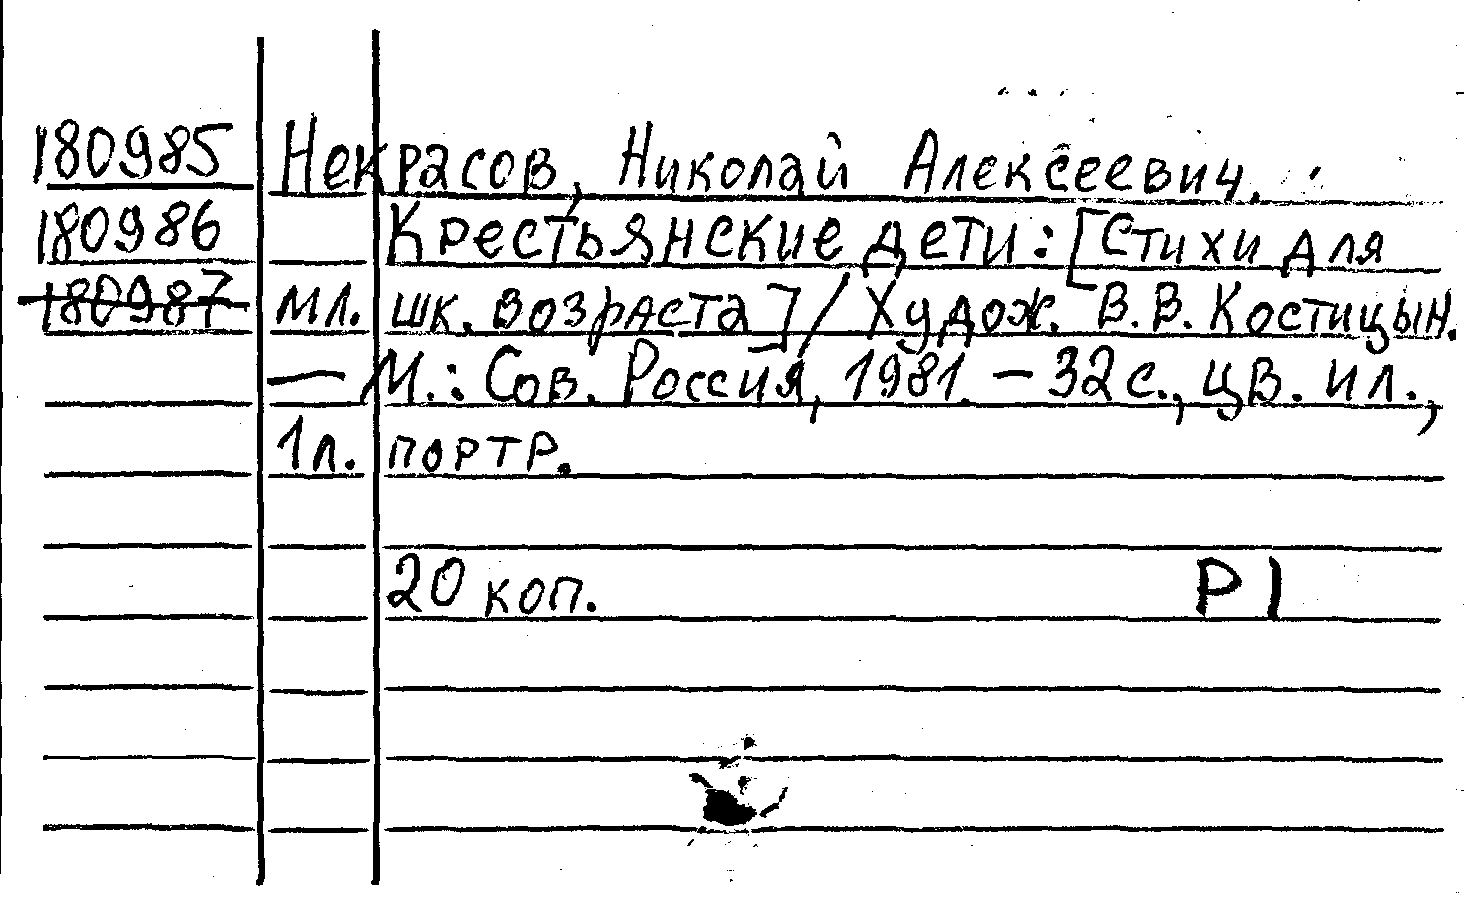 180985 Некрасов, Николай Алексеевич.
180986 Крестьянские дети: [Стихи для
180987 мл. шк. возраста] / Худож. В.В. Костицын.
— М.: Сов. Россия, 1981. – 32 с., цв. ил.,
1 л. портр.
20 коп. Р1